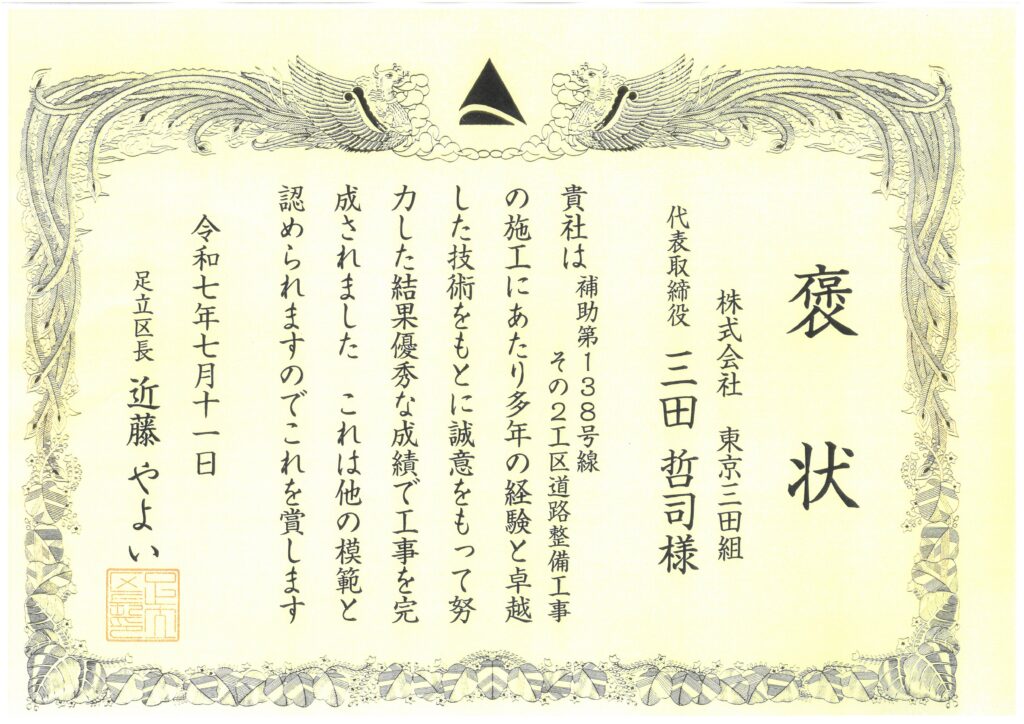 褒状
株式会社 東京三田組
代表取締役 三田 哲司様
貴社は 補助第138号線
その2工区道路整備工事
の施工にあたり多年の経験と卓越
した技術をもとに誠意をもって努
力した結果優秀な成績で工事を完
成されました これは他の模範と
認められますのでこれを賞します
令和七年七月十一日
足立区長 近藤 やよい